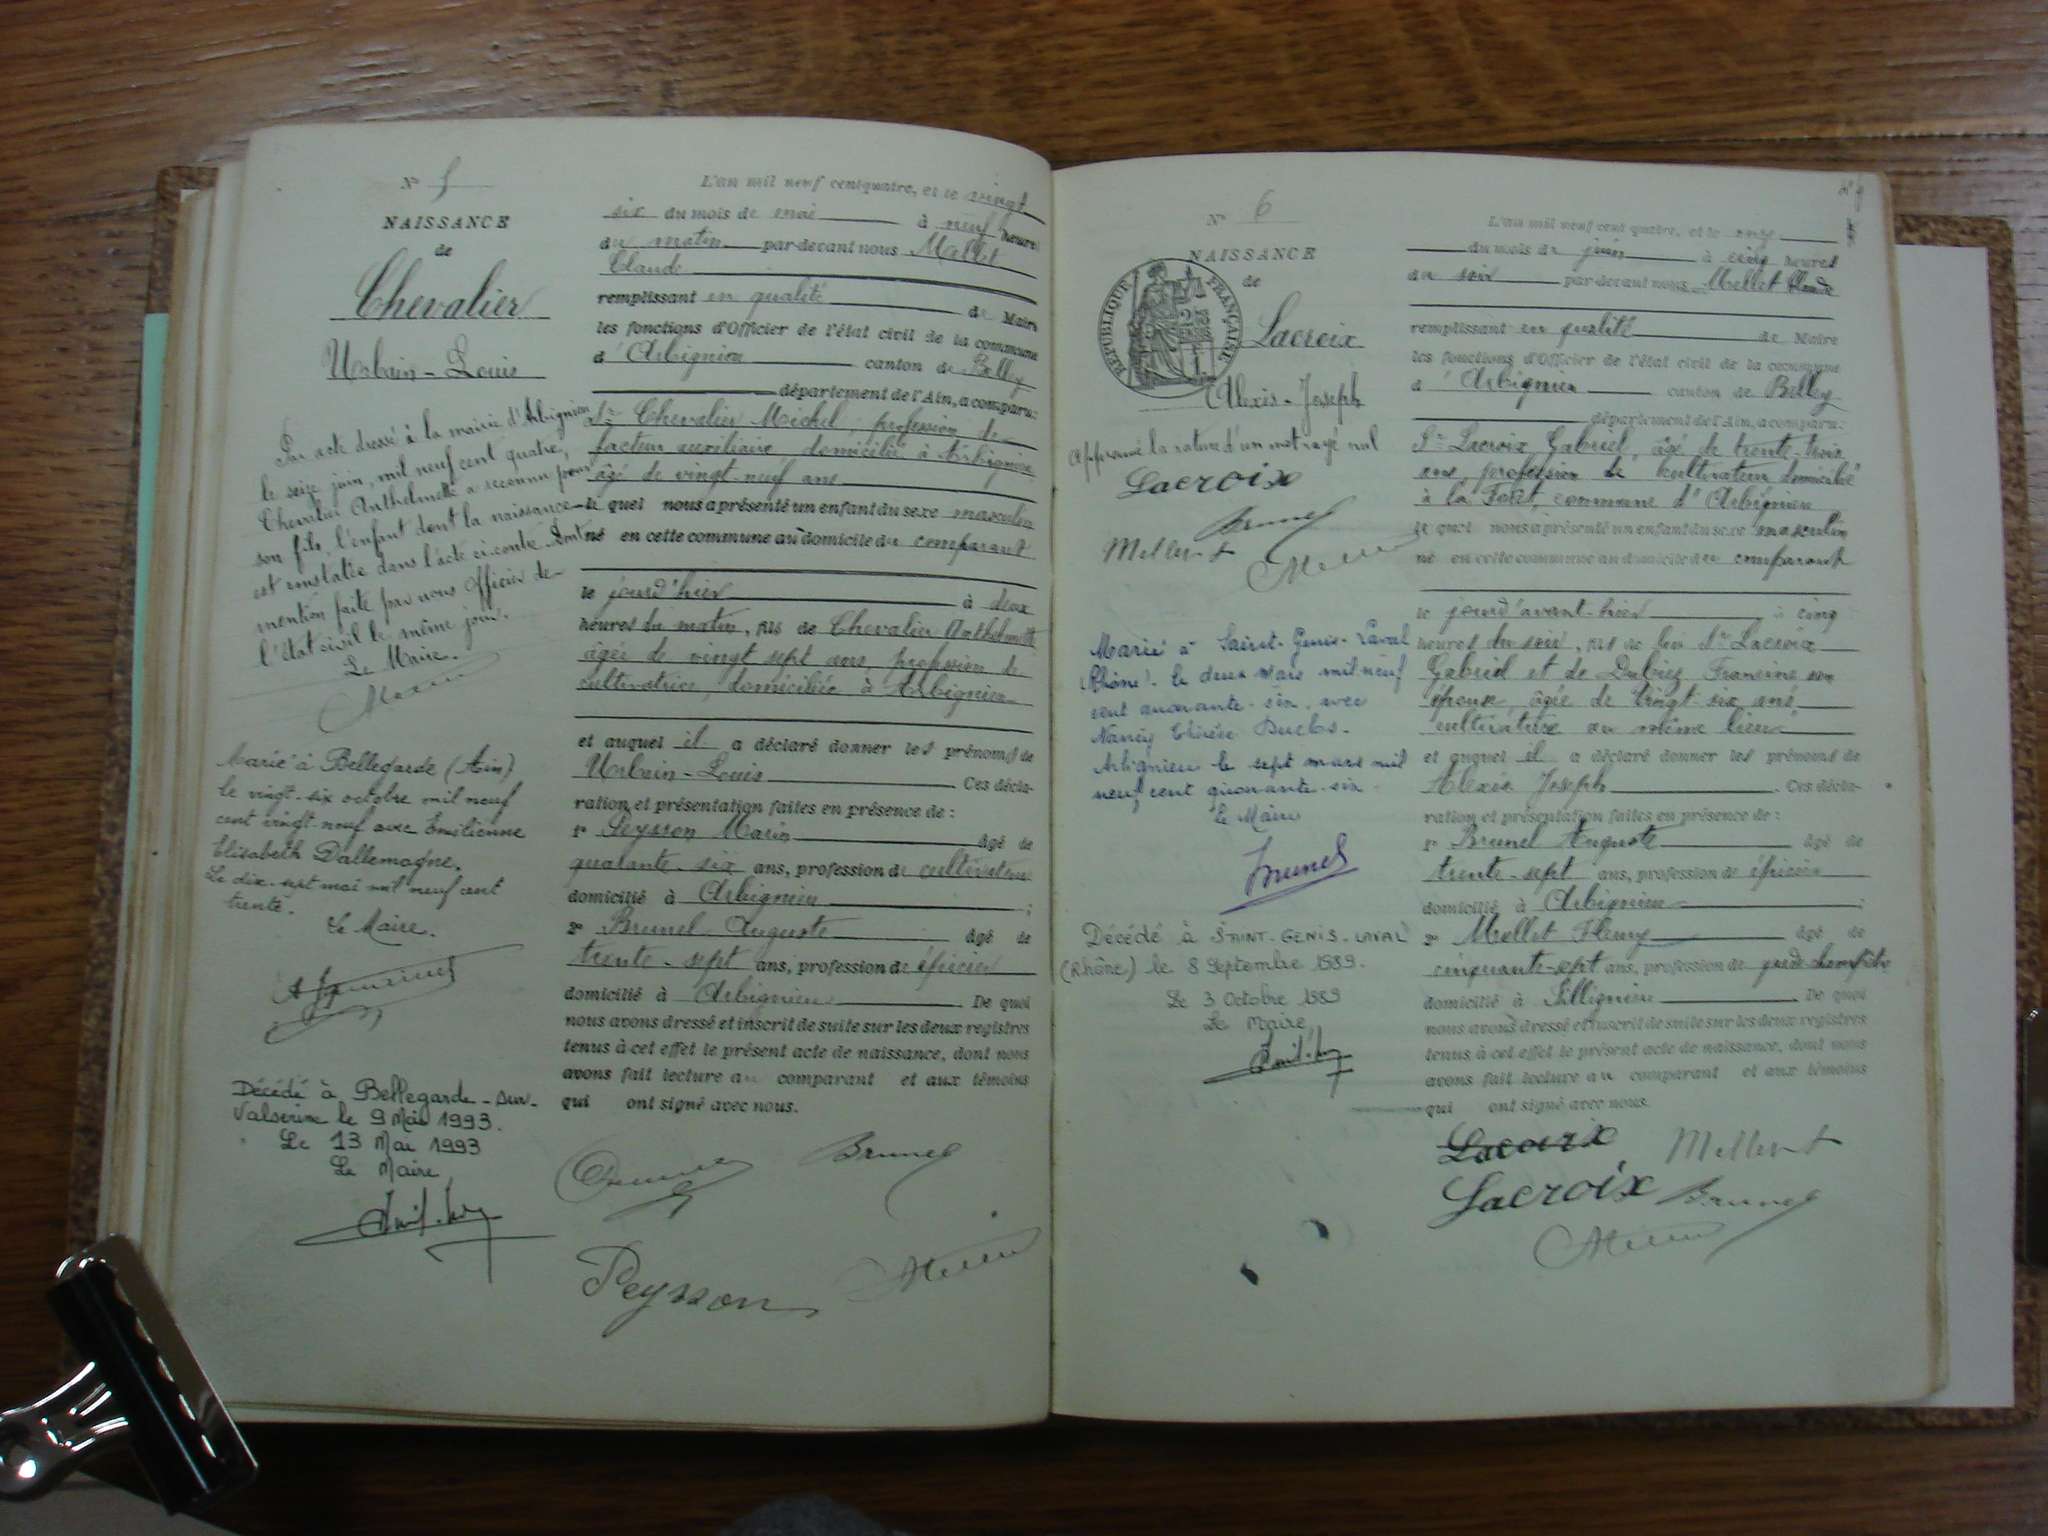 N° 5
NAISSANCE
de
Chevalier
Urbain-Louis
Par acte dressé à la mairie d'Arbignieu
le seize juin, mil neuf cent quatre,
Chevalier Anthelmette a reconnu pour
son fils, l'enfant dont la naissance
est constatée dans l'acte ci-contre. Dont
mention faite par nous Officier de
l'état civil le même jour.
Le Maire.
Marié à Bellegarde (Ain)
le vingt-six octobre mil neuf
cent vingt-neuf avec Emilienne
Elisabeth Dallemagne.
Le dix-sept mai mil neuf cent
trente.
Le Maire.
Décédé à Bellegarde-sur-
Valserine le 9 Mai 1993.
Le 13 Mai 1993
Le Maire
L'an mil neuf cent quatre, et le vingt
six du mois de mai à neuf heures
du matin par-devant nous Mellet
Claude
remplissant en qualité de Maire
les fonctions d'Officier de l'état civil de la commune
d'Arbignieu canton de Belley
département de l'Ain, a comparu:
Sr Chevalier Michel, profession de
facteur auxiliaire domicilié à Arbignieu
âgé de vingt-neuf ans
le quel nous a présenté un enfant du sexe masculin
né en cette commune au domicile du comparant
le jourd'hier à deux
heures du matin, fils de Chevalier Anthelmette
âgée de vingt sept ans, profession de
cultivatrice, domiciliée à Arbignieu
et auquel il a déclaré donner les prénoms de
Urbain-Louis Ces décla-
ration et présentation faites en présence de:
1° Peysson Marin âgé de
quarante-six ans, profession de cultivateur
domicilié à Arbignieu ;
2° Brunel Auguste âgé de
trente-sept ans, profession de épicier
domicilié à Arbignieu. De quoi
nous avons dressé et inscrit de suite sur les deux registres
tenus à cet effet le présent acte de naissance, dont nous
avons fait lecture au comparant et aux témoins
qui ont signé avec nous.
Brunel
Peysson
N° 6
NAISSANCE
de
RÉPUBLIQUE FRANÇAISE
Lacroix
Alexis-Joseph
Approuvé la rature d'un mot rayé nul
Lacroix
Brunel
Mellet
Marié à Saint-Genis-Laval
(Rhône). le deux mars mil neuf
cent quarante-six, avec
Nancy Thérèse Duclos.
Arbignieu le sept mars mil
neuf cent quarante-six.
Le Maire
Brunel
Décédé à SAINT-GENIS-LAVAL
(Rhône) le 8 Septembre 1989.
Le 3 Octobre 1989
Le Maire,
L'an mil neuf cent quatre, et le onze
du mois de juin à cinq heures
du soir par-devant nous Mellet Claude
remplissant en qualité de Maire
les fonctions d'Officier de l'état civil de la commune
d'Arbignieu canton de Belley
département de l'Ain, a comparu:
Sr Lacroix Gabriel, âgé de trente-trois
ans profession de cultivateur domicilié
à la Forêt, commune d'Arbignieu
le quel nous a présenté un enfant du sexe masculin
né en cette commune au domicile du comparant
le jourd'avant-hier à cinq
heures du soir, fils de lui Sr Lacroix
Gabriel et de Francine son
épouse, âgée de vingt-six ans
cultivatrice au même lieu
et auquel il a déclaré donner les prénoms de
Alexis Joseph. Ces décla-
ration et présentation faites en présence de:
1° Brunel Auguste âgé de
trente-sept ans, profession de épicier
domicilié à Arbignieu ;
2° Mellet Fleury âgé de
cinquante-sept ans, profession de garde-champêtre
domicilié à Sillignieu. De quoi
nous avons dressé et inscrit de suite sur les deux registres
tenus à cet effet le présent acte de naissance, dont nous
avons fait lecture au comparant et aux témoins
qui ont signé avec nous.
Lacroix Mellet
Lacroix Brunel